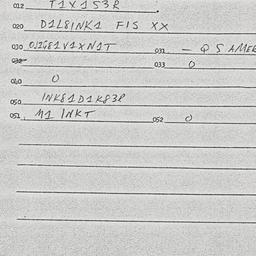 012 T1X1S3R
020 D1L8INK1 FIS XX
030 031 — Q S AMER
033 0
040 0
050 INK81D1K83R
051 M1 INKT 052 0